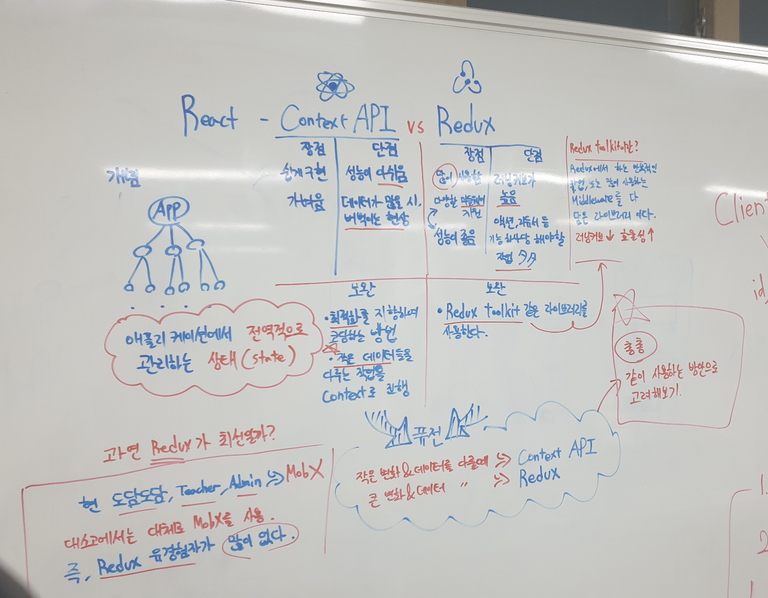 React - Context API vs Redux
장점
쉽게 구현
가벼움
단점
성능이 다쉬움
데이터가 많을 시.
버벅이는 현상
장점
많이 사용함
다양한
지원
성능이 좋음
단점
높음
액션, 리듀서 등
기능 하나당 해야할
작업
Redux toolkit이란?
Redux에서 하는 반복적인
작업, 또는 많이 사용하는
Middleware를 다
담은 라이브러리 이다.
러닝커브↓ 효율성↑
App
애플리케이션에서 전역적으로
관리하는 상태(state)
보완
• 최적화를 지향하며
코딩하는 방법
• 작은 데이터들을
다루는 작업을
Context로 진행
보완
• Redux toolkit 같은 라이브러리를
사용한다.
총총
같이 사용하는 방안으로
고려해보기.
퓨전
작은 변화&데이터를 다룰때 => Context API
큰 변화&데이터 〃 => Redux
과연 Redux가 최선일까?
현 도담도담, Teacher, Admin => MobX
대소고에서는 대체로 MobX를 사용.
즉, Redux 유경험자가 많이 없다.
Client
id
1.
2